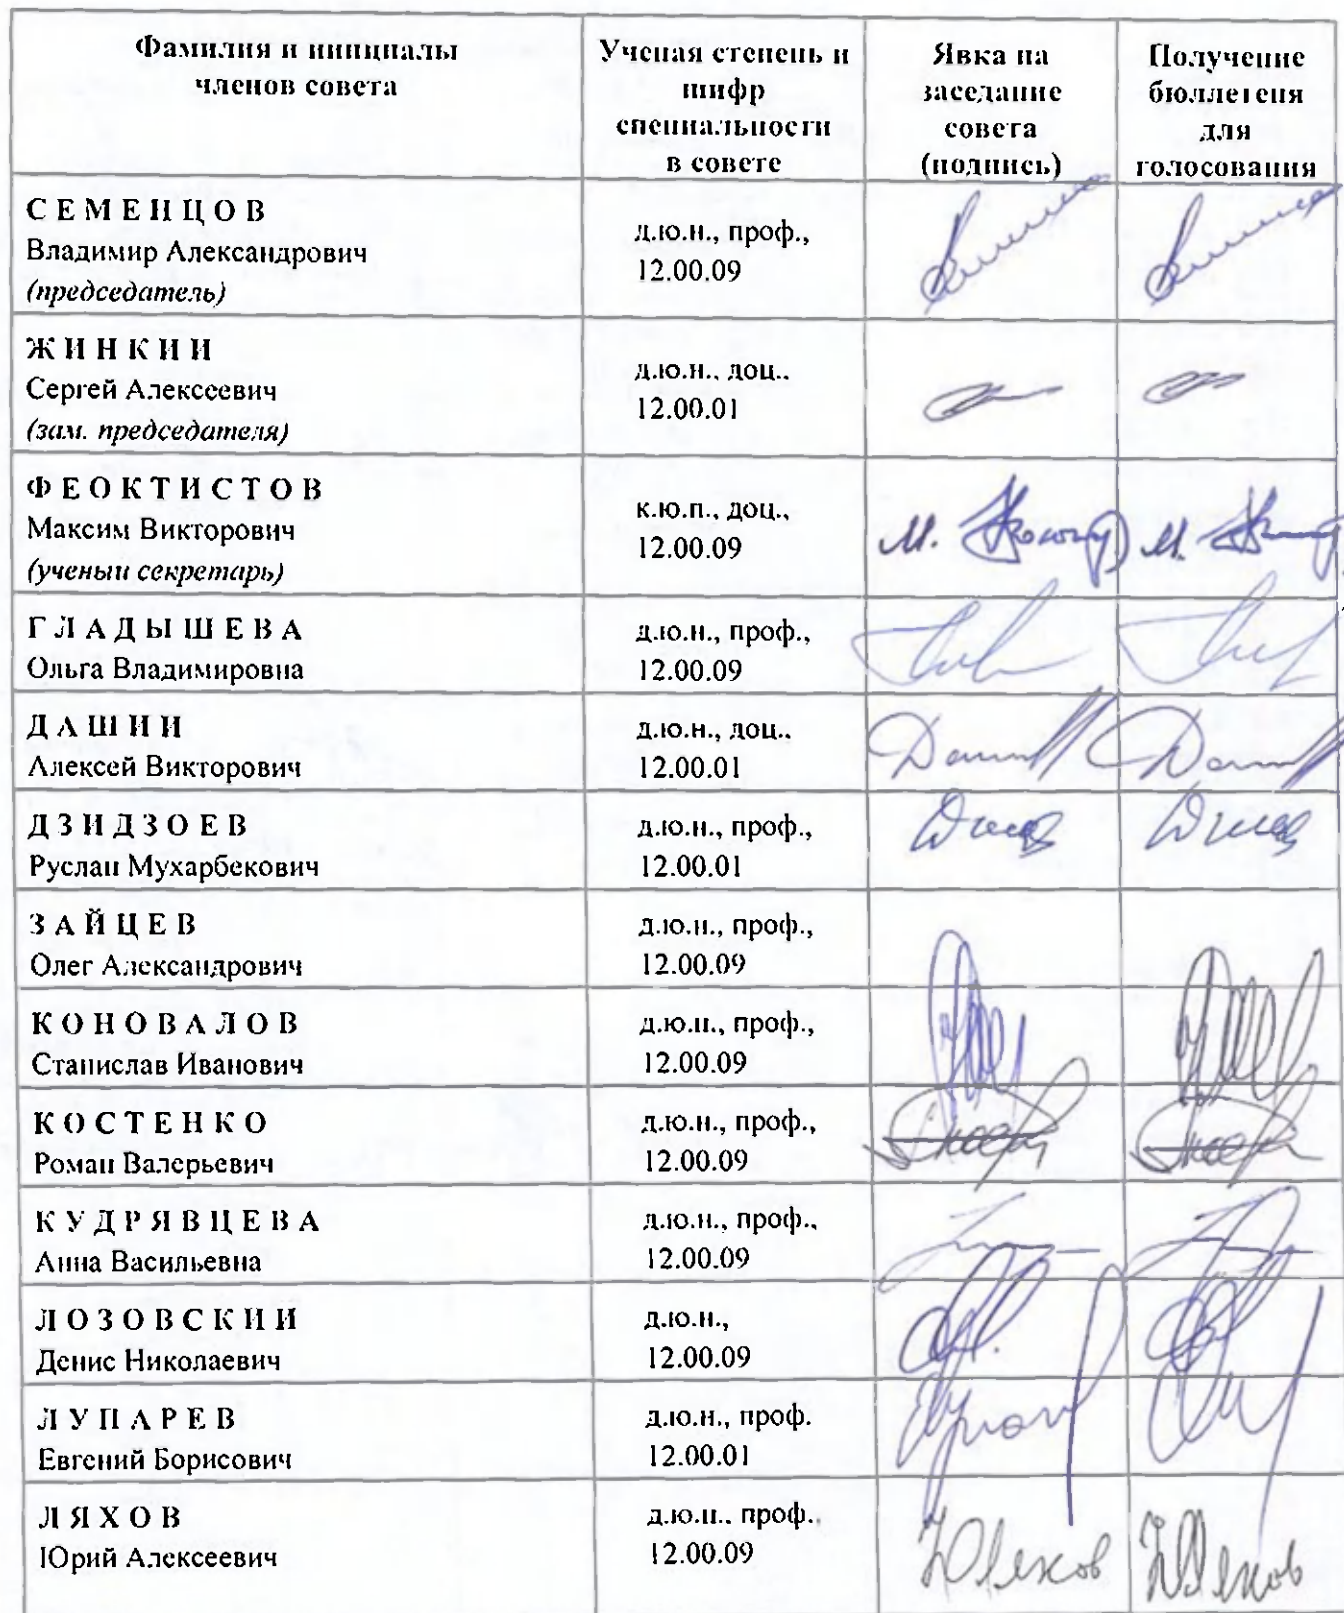 Фамилия и инициалы членов совета
Ученая степень и шифр специальности в совете
Явка на заседание совета (подпись)
Получение бюллетеня для голосования
СЕМЕНЦОВ
Владимир Александрович
(председатель)
д.ю.н., проф.,
12.00.09
ЖИНКИН
Сергей Алексеевич
(зам. председателя)
д.ю.н., доц.,
12.00.01
ФЕОКТИСТОВ
Максим Викторович
(ученый секретарь)
к.ю.н., доц.,
12.00.09
ГЛАДЫШЕВА
Ольга Владимировна
д.ю.н., проф.,
12.00.09
ДАШИН
Алексей Викторович
д.ю.н., доц.,
12.00.01
ДЗИДЗОЕВ
Руслан Мухарбекович
д.ю.н., проф.,
12.00.01
ЗАЙЦЕВ
Олег Александрович
д.ю.н., проф.,
12.00.09
КОНОВАЛОВ
Станислав Иванович
д.ю.н., проф.,
12.00.09
КОСТЕНКО
Роман Валерьевич
д.ю.н., проф.,
12.00.09
КУДРЯВЦЕВА
Анна Васильевна
д.ю.н., проф.,
12.00.09
ЛОЗОВСКИЙ
Денис Николаевич
д.ю.н.,
12.00.09
ЛУПАРЕВ
Евгений Борисович
д.ю.н., проф.
12.00.01
ЛЯХОВ
Юрий Алексеевич
д.ю.н., проф.,
12.00.09